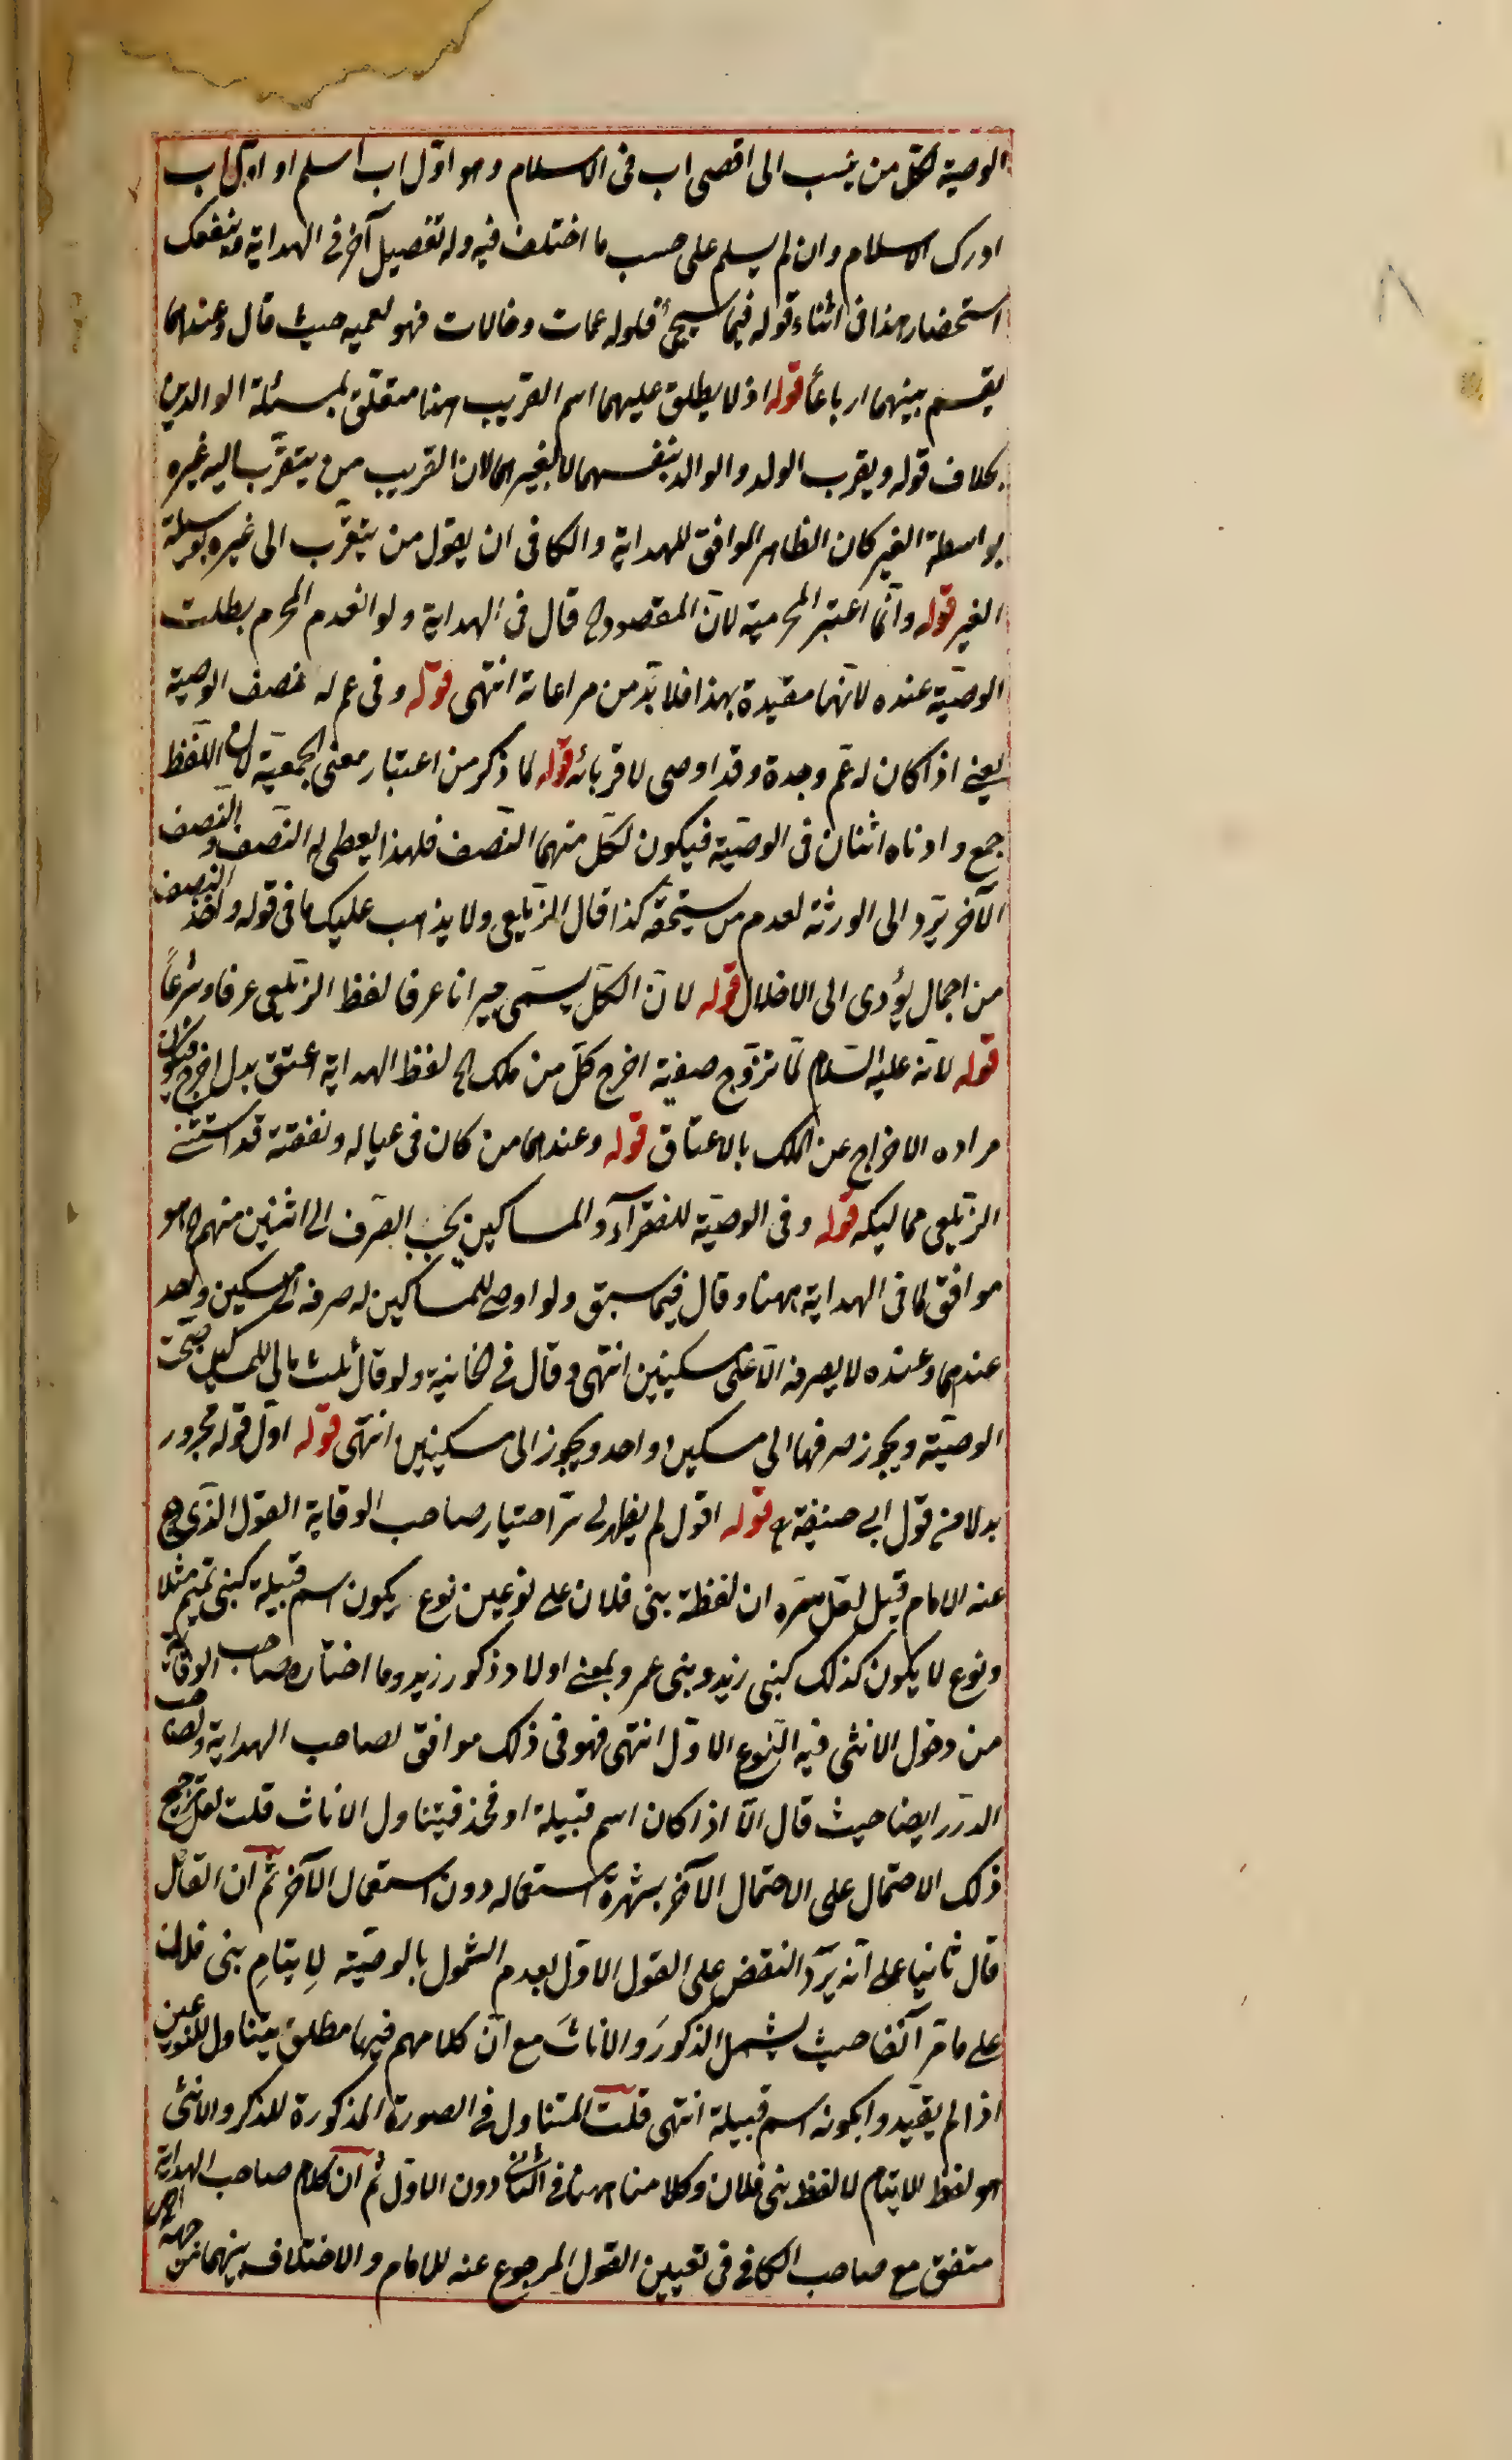 الوصية لكل من ينسب الى اقصى اب فى الاسلام وهو اوّل اب اسلم او اوّل اب
ادرك الاسلام وان لم يسلم على حسب ما اختلف فيه وله تفصيل آخر فى الهداية وينفعك
استحضار هذا فى اثناء قوله فيما سيجئ فلو له عمات وخالات فهو لعميه حيث قال وعندهما
يقسم بينهما ارباعاً قوله اذ لا يطلق عليهما اسم القريب هذا متعلق بمسئلة الوالدين
بخلاف قوله ويقرب الولد والوالد بنفسهما لا بغيرهما لان القريب من يتقرّب اليه غيره
بواسطة الغير كان الظاهر الموافق للهداية والكافى ان يقول من يتقرّب الى غيره بوسيلة
الغير قوله وانّما اعتبر المحرمية لانّ المقصود الخ قال فى الهداية ولو انعدم المحرم بطلت
الوصيّة عنده لانّها مقيدة بهذا فلا بدّ من مراعاته انتهى قوله وفى عم له نصف الوصية
يعنى اذا كان له عمّ وحدة وقد اوصى لاقربائه قوله لما ذكر من اعتبار معنى الجمعيّة لان اللّفظ
جمع وادناه اثنان فى الوصيّة فيكون لكلّ منهما النّصف فلهذا يعطى له النّصف والنّصف
الآخر يردّ الى الورثة لعدم من يستحقه كذا قال الزّيلعى ولا يذهب عليك ما فى قوله واخذ النصف
من اجمال يؤدى الى الاخلال قوله لانّ الكلّ يسمّى جيرانا عرفا لفظ الزّيلعى عرفا وشرعاً
قوله لانّه عليه السّلام لمّا تزوّج صفية اخرج كلّ من ملك الخ لفظ الهداية اعتق بدل اخرج فيكون
مراده الاخراج عن الملك بالاعتاق قوله وعندهما من كان فى عياله ونفقته قد استثنى
الزّيلعى مماليكه قوله وفى الوصيّة للفقرآء والمساكين يجب الصّرف الى اثنين منهم الخ هو
موافق لما فى الهداية ههنا وقال فيما سبق ولو اوصى للمساكين له صرفه الى مسكين واحد
عندهما وعنده لا يصرفه الّا على مسكينين انتهى وقال فى الخانية ولو قال ثلث مالى للمسكين صحّت
الوصيّة ويجوز صرفها الى مسكين واحد ويجوز الى مسكينين انتهى قوله اوّل قوله مجرور
بدلا من قول ابى حنيفة قوله اقول لم يظهر لى سرّ اختيار صاحب الوقاية القول الّذى رجع
عنه الامام قيل لعلّ سرّه ان لفظة بنى فلان على نوعين نوع يكون اسم قبيلة كبنى تميم مثلا
ونوع لا يكون كذلك كبنى زيد وبنى عمرو بمعنى اولاد ذكور زيد وما اختاره صاحب الوقاية
من دخول الانثى فيه النّوع الاوّل انتهى فهو فى ذلك موافق لصاحب الهداية ولصاحب
الدّرر ايضا حيث قال الّا اذا كان اسم قبيلة او فخذ فيتناول الاناث قلت لعلّ ترجيح
ذلك الاحتمال على الاحتمال الآخر بشهرة استعماله دون استعمال الآخر ثم ان القائل
قال ثانيا على انّه يرّد النقض على القول الاوّل بعدم الشّمول بالوصيّة لِايتامِ بنى فلان
على ما مرّ آنفا حيث يشمل الذكورَ والاناثَ مع انّ كلامهم فيها مطلق يتناول للنوعين
اذا لم يقيّدوا بكونه اسم قبيلة انتهى قلت المتناول فى الصورة المذكورة للذكر والانثى
هو لفظ الايتام لا لفظ بنى فلان وكلامنا ههنا فى الثانى دون الاوّل ثم ان كلام صاحب الهداية
متفق مع صاحب الكافى فى تعيين القول المرجوع عنه للامام والاختلاف بينهما من جهة